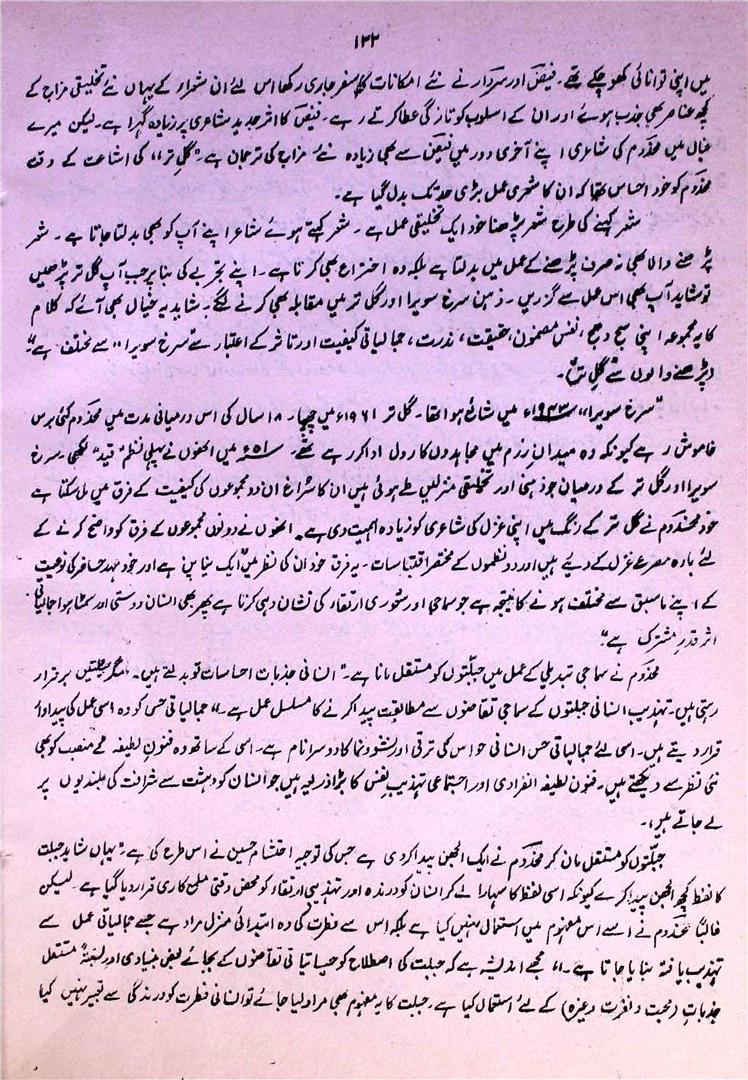 ۱۳۲
میں اپنی توانائی کھو چکے تھے۔ فیضؔ اور سردار نے نئے امکانات کا سفر جاری رکھا اس لئے ان شعراء کے یہاں نئے تخلیقی مزاج کے
کچھ عناصر بھی جذب ہوئے اور ان کے اسلوب کو تازگی عطا کرتے رہے۔ فیضؔ کا اثر جدید شاعری پر زیادہ گہرا ہے۔ لیکن میرے
خیال میں مخدوم کی شاعری اپنے آخری دور میں فیضؔ سے بھی زیادہ نئے مزاج کی ترجمان ہے۔ "گل تر" کی اشاعت کے وقت
مخدوم کو خود احساس تھا کہ ان کا شعری عمل بڑی حد تک بدل گیا ہے۔
شعر کہنے کی طرح شعر پڑھنا خود ایک تخلیقی عمل ہے۔ شعر کہتے ہوئے شاعر اپنے آپ کو بھی بدلتا جاتا ہے۔ شعر
پڑھنے والا بھی نہ صرف پڑھنے کے عمل میں بدلتا ہے بلکہ وہ اختراع بھی کرتا ہے۔ اپنے تجربے کی بنا پر جب آپ گل تر پڑھیں
تو شاید آپ بھی اس عمل سے گزریں۔ ذہن سرخ سویرا اور گل تر میں مقابلہ بھی کرنے لگے۔ شاید یہ خیال بھی آئے کہ کلام
کا یہ مجموعہ اپنی سج دھج، نفس مضمون، حقیقت، ندرت، جمالیاتی کیفیت اور تاثر کے اعتبار سے سرخ سویرا" سے مختلف ہے"۔
(پڑھنے والوں سے گل تر)۔
"سرخ سویرا" ۱۹۴۴ء میں شائع ہوا تھا۔ گل تر ۱۹۶۱ء میں چھپا۔ ۱۸ سال کی اس درمیانی مدت میں مخدوم کئی برس
خاموش رہے کیونکہ وہ میدانِ رزم میں مجاہدوں کا رول ادا کر رہے تھے۔ ۵۱ء میں انھوں نے پہلی نظم "قید" لکھی۔ سرخ
سویرا اور گل تر کے درمیان جو ذہنی اور تخلیقی منزلیں طے ہوئی ہیں ان کا سراغ ان دو مجموعوں کی کیفیت کے فرق میں مل سکتا ہے
خود مخدوم نے گل تر کے رنگ میں اپنی غزل کی شاعری کو زیادہ اہمیت دی ہے۔ انھوں نے دونوں مجموعوں کے فرق کو واضح کرنے کے
لئے بارہ مصرعے غزل کے دیئے ہیں اور دو نظموں کے مختصر اقتباسات۔ یہ فرق خود ان کی نظر میں "ایک نیا پن ہے اور جو عہد حاضر کی نوعیت
کے اپنے ماسبق سے مختلف ہونے کا نتیجہ ہے جو سماجی اور شعوری ارتقاء کی نشان دہی کرتا ہے پھر بھی انسان دوستی اور سمٹا ہوا جمالیاتی
اثر قدرِ مشترک ہے"
مخدوم نے سماجی تبدیلی کے عمل میں جبلّتوں کو مستقل مانا ہے۔ "انسانی جذبات احساسات تو بدلتے ہیں۔ مگر جبلّتیں برقرار
رہتی ہیں۔ تہذیب انسانی جبلتوں کے سماجی تقاضوں سے مطابقت پیدا کرنے کا مسلسل عمل ہے۔" جمالیاتی حس کو وہ اسی عمل کی پیداوار
قرار دیتے ہیں۔ اسی لئے جمالیاتی حس انسانی حواس کی ترقی اور نشو و نما کا دوسرا نام ہے۔ اسی کے ساتھ وہ فنونِ لطیفہ کے منصب کو بھی
نئی نظر سے دیکھتے ہیں۔ فنون لطیفہ انفرادی اور اجتماعی تہذیبِ نفس کا بڑا ذریعہ ہیں جو انسان کو وحشت سے شرافت کی بلندیوں پر
لے جاتے ہیں،۔
جبلّتوں کو مستقل مان کر مخدوم نے ایک الجھن پیدا کردی ہے جس کی توجیہ احتشام حسین نے اس طرح کی ہے۔ "یہاں شاید جبلت
کا لفظ کچھ الجھن پیدا کرے کیونکہ اسی لفظ کا سہارا لے کر انسان کو درندہ اور تہذیبی ارتقاء کو محض وقتی ملمع کاری قرار دیا گیا ہے۔ لیکن
غالباً مخدوم نے اسے اس مفہوم میں استعمال نہیں کیا ہے بلکہ اس سے فطرت کی وہ ابتدائی منزل مراد ہے جسے جمالیاتی عمل سے
تہذیب یافتہ بنایا جاتا ہے۔" مجھے اندیشہ ہے کہ جبلت کی اصطلاح کو حیاتیاتی تقاضوں کے بجائے بعض بنیادی اور نسبتہً مستقل
جذبات (محبت و نفرت وغیرہ) کے لئے استعمال کیا ہے۔ جبلت کا یہ مفہوم بھی مراد لیا جائے تو انسانی فطرت کو درندگی سے تعبیر نہیں کیا